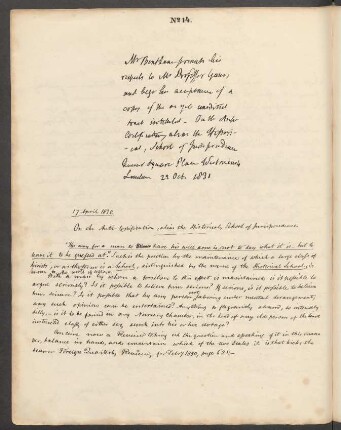 No 14.
Mr Bentham presents his
respects to Mr Professor Gans,
and begs his acceptance of a
copy of the as yet unedited
tract intituled - On the Anti-
Codification, alias the Histori-
cal, School of Jurisprudence
Queen Square Place Westminster
London 23 Oct. 1831
17 April 1830
On the Anti-Codification, alias the Historical School of Jurisprudence
"The way for a man to have his will done is not to say what it is, but to
leave it to be guessed at". Such is the position by the maintenance of which a large class of
jurists, or as the phrase is a School, distinguished by the name of the Historical School, is
known
But a man by whom a position to this effect is maintained is it possible to
argue seriously? Is it possible to believe him serious? If serious, is it possible, to believe
him sane? Is it possible that by any person, labouring under mental derangement,
any such opinion can be entertained? Anything so flagrantly absurd, so intensely
silly, is it to be found in any Nursery Chamber, in the head of any old person of the least
instructed class of either sex, sunk into his or her dotage?
Conceive now a Reviewer taking up the question and speaking of it in this manner
balance in hand, and uncertain which of the two scales it is that has the
heavier Foreign Quarterly Review for Feby 1830, page